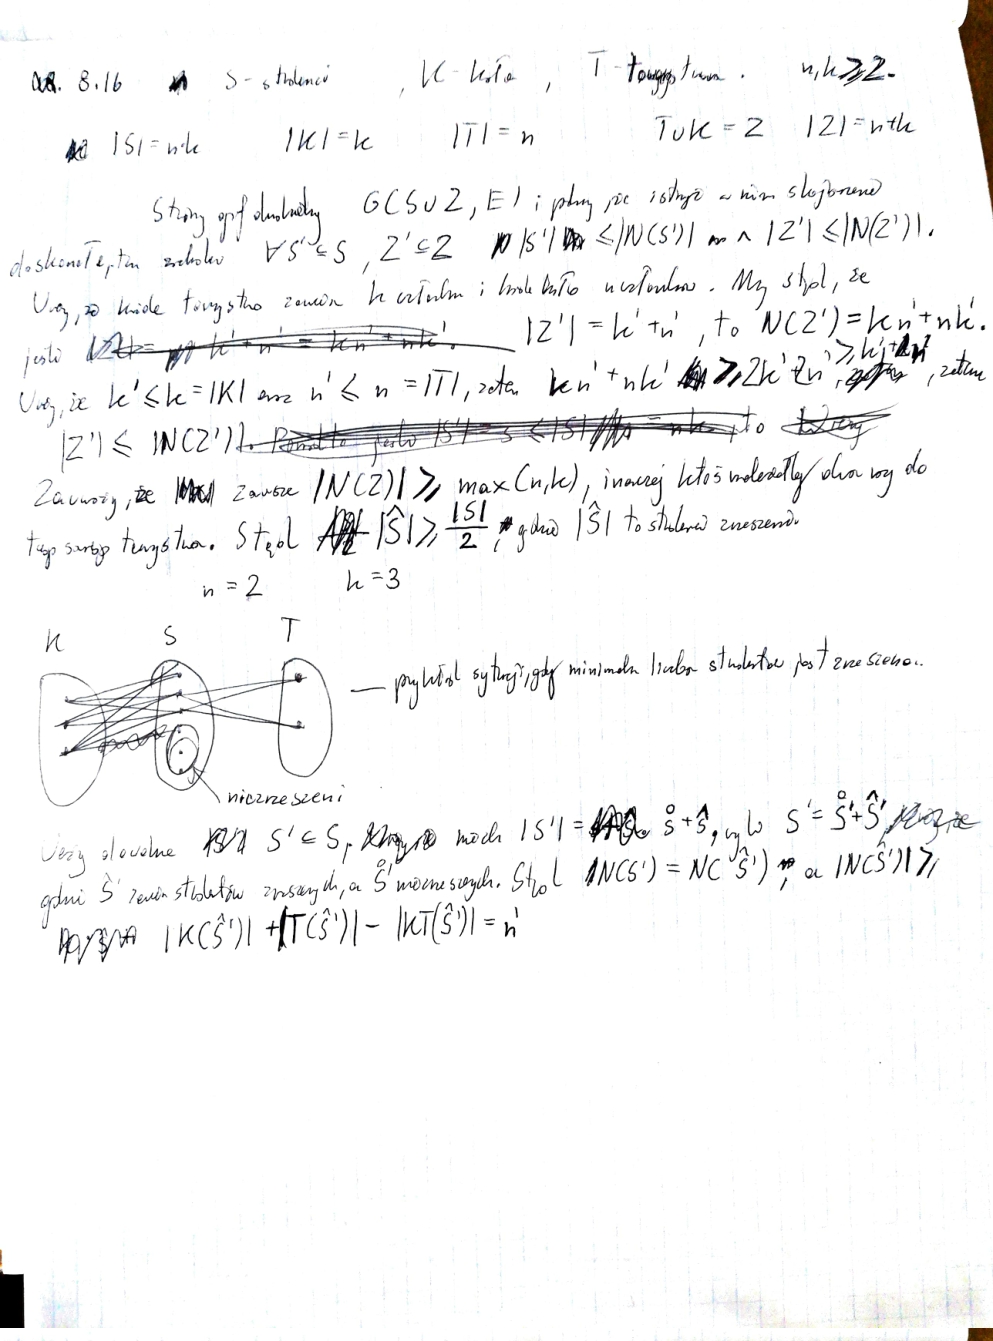 8.16 S - studenci , K - koła , T - towarzystwa . n,k ⩾ 2.
|S| = n·k |K| = k |T| = n T∪K = Z |Z| = n+k
Stwórzmy graf dwudzielny G(S∪Z, E) i że istnieje w nim skojarzenie
doskonałe, ten ∀S'⊆S, Z'⊆Z |S'| ≤ |N(S')| ∧ |Z'| ≤ |N(Z')|.
że każde towarzystwo zawiera k członków i każde koło n członków. Mamy stąd, że
jeśli |Z'| = k'+n', to N(Z') = kn'+nk'.
że k' ≤ k = |K| oraz n' ≤ n = |T|, zatem kn'+nk' ⩾ 2k'+2n' ⩾ k'+n', zatem
|Z'| ≤ |N(Z')|.
Zauważmy, że zawsze |N(Z)| ⩾ max(n,k), inaczej ktoś należałby dwa razy do
tego samego towarzystwa. Stąd |Ŝ| ⩾ |S|/2, gdzie |Ŝ| to studenci zrzeszeni.
n = 2 k = 3
K S T
— przykład sytuacji, gdy minimalna liczba studentów jest zrzeszona.
niezrzeszeni
dowolne S' ⊆ S, niech |S'| = s̊ + ŝ, S' = S̊' + Ŝ',
gdzie Ŝ' studentów zrzeszonych, a S̊' niezrzeszonych. Stąd |N(S') = N(Ŝ'), a |N(Ŝ')| ⩾
|K(Ŝ')| + |T(Ŝ')| - |KT(Ŝ')| = n'